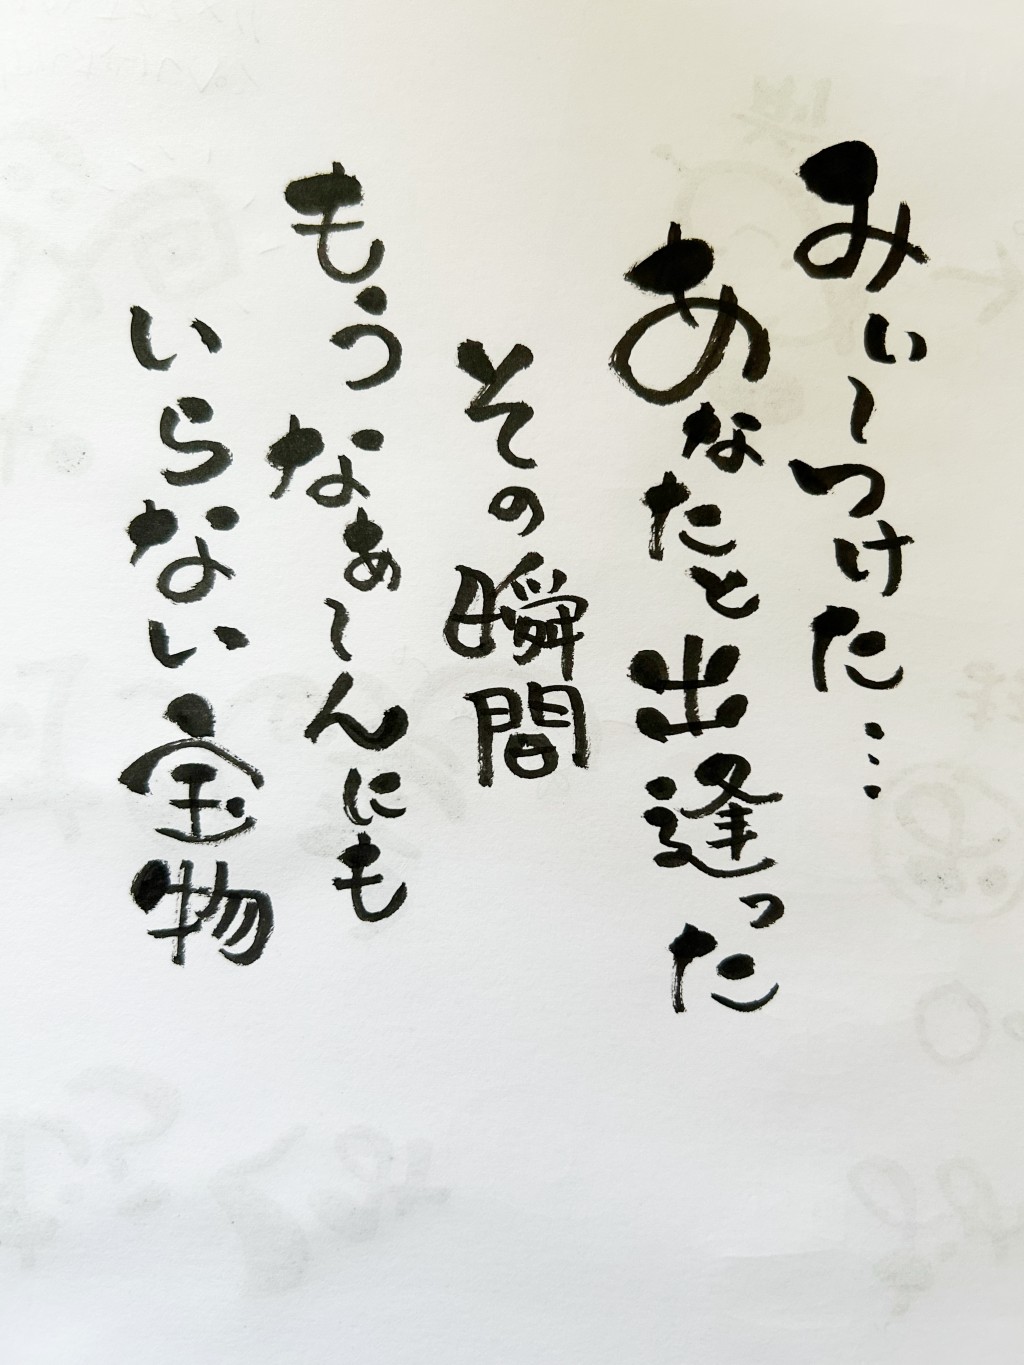 みぃーつけた…
あなたと出逢った
その瞬間
もうなぁーんにも
いらない宝物